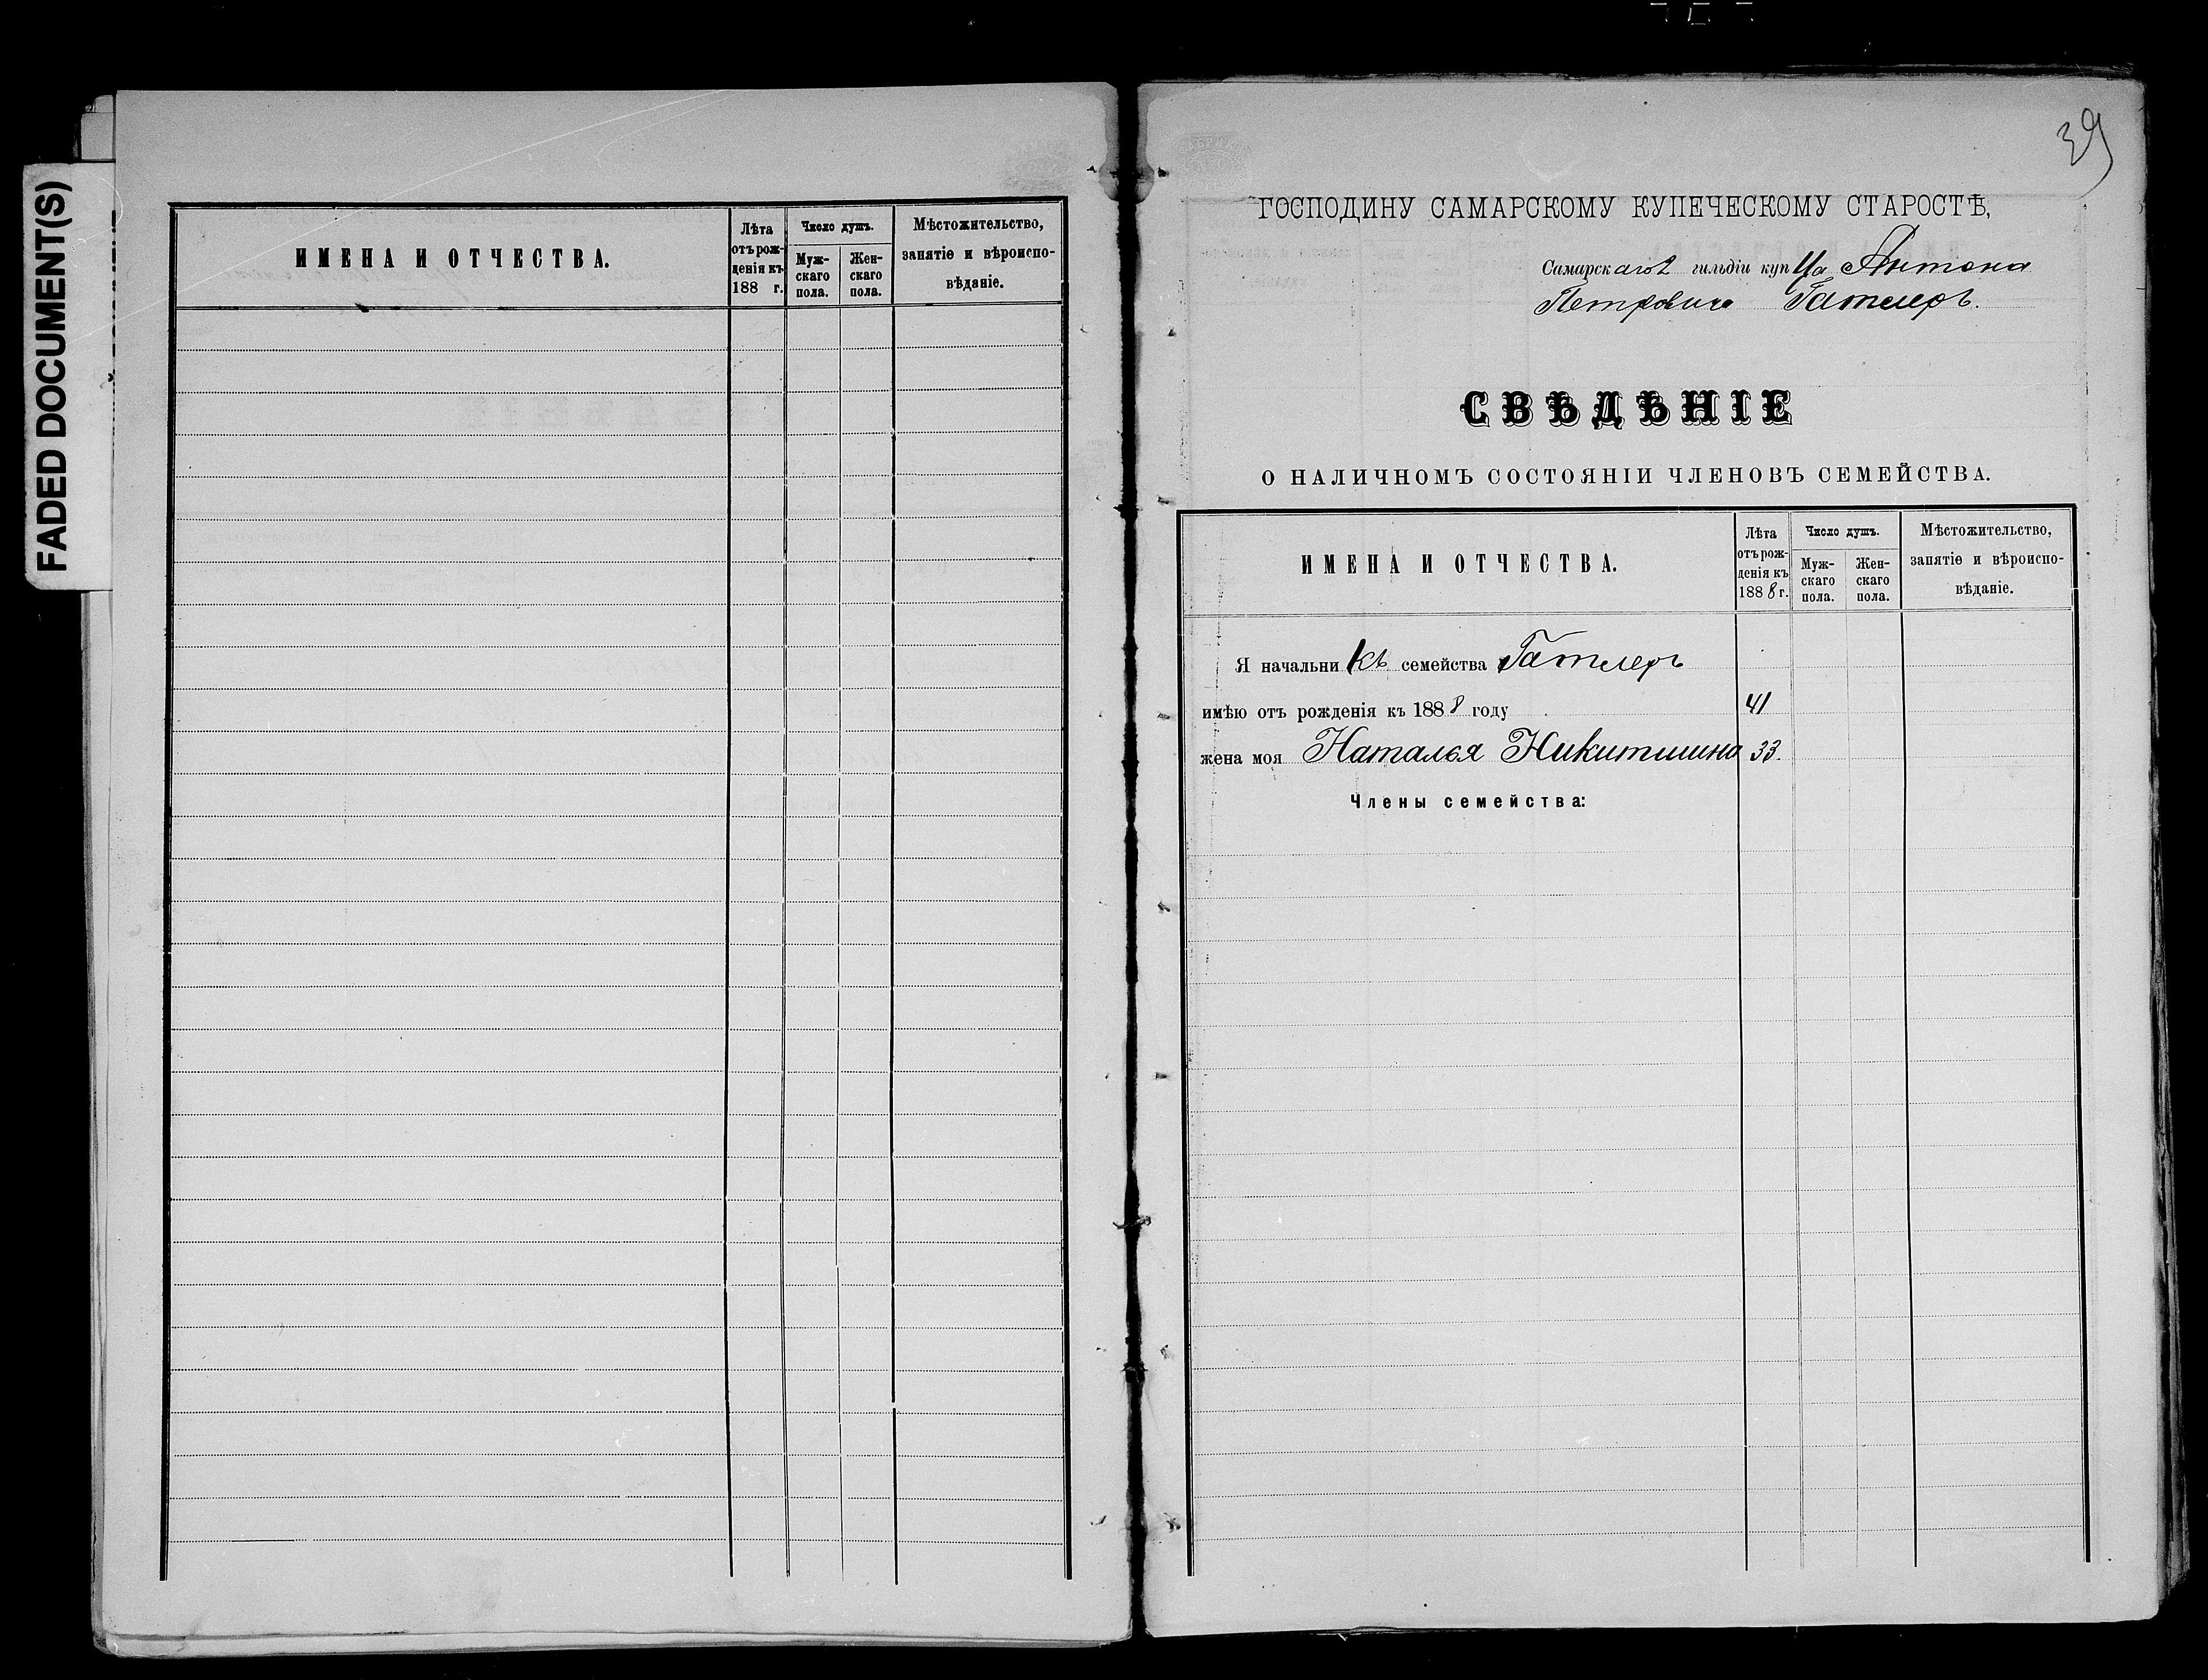 FADED DOCUMENT(S)
ИМЕНА И ОТЧЕСТВА.
Лѣта отъ рож-
денія къ
188 г.
Число душъ.
Муж-
скаго
пола.
Жен-
скаго
пола.
Мѣстожительство,
занятіе и вѣроиспо-
вѣданіе.
39
ГОСПОДИНУ САМАРСКОМУ КУПЕЧЕСКОМУ СТАРОСТѢ,
Самарскаго 2 гильдіи купца Антона
Петровича Гатлеръ.
СВѢДѢНІЕ
О НАЛИЧНОМЪ СОСТОЯНІИ ЧЛЕНОВЪ СЕМЕЙСТВА.
ИМЕНА И ОТЧЕСТВА.
Лѣта
отъ рож-
денія къ
1888 г.
Число душъ.
Муж-
скаго
пола.
Жен-
скаго
пола.
Мѣстожительство,
занятіе и вѣроиспо-
вѣданіе.
Я начальникъ семейства Гатлеръ
имѣю отъ рожденія къ 1888 году 41
жена моя Наталья Никитишна 33.
Члены семейства: